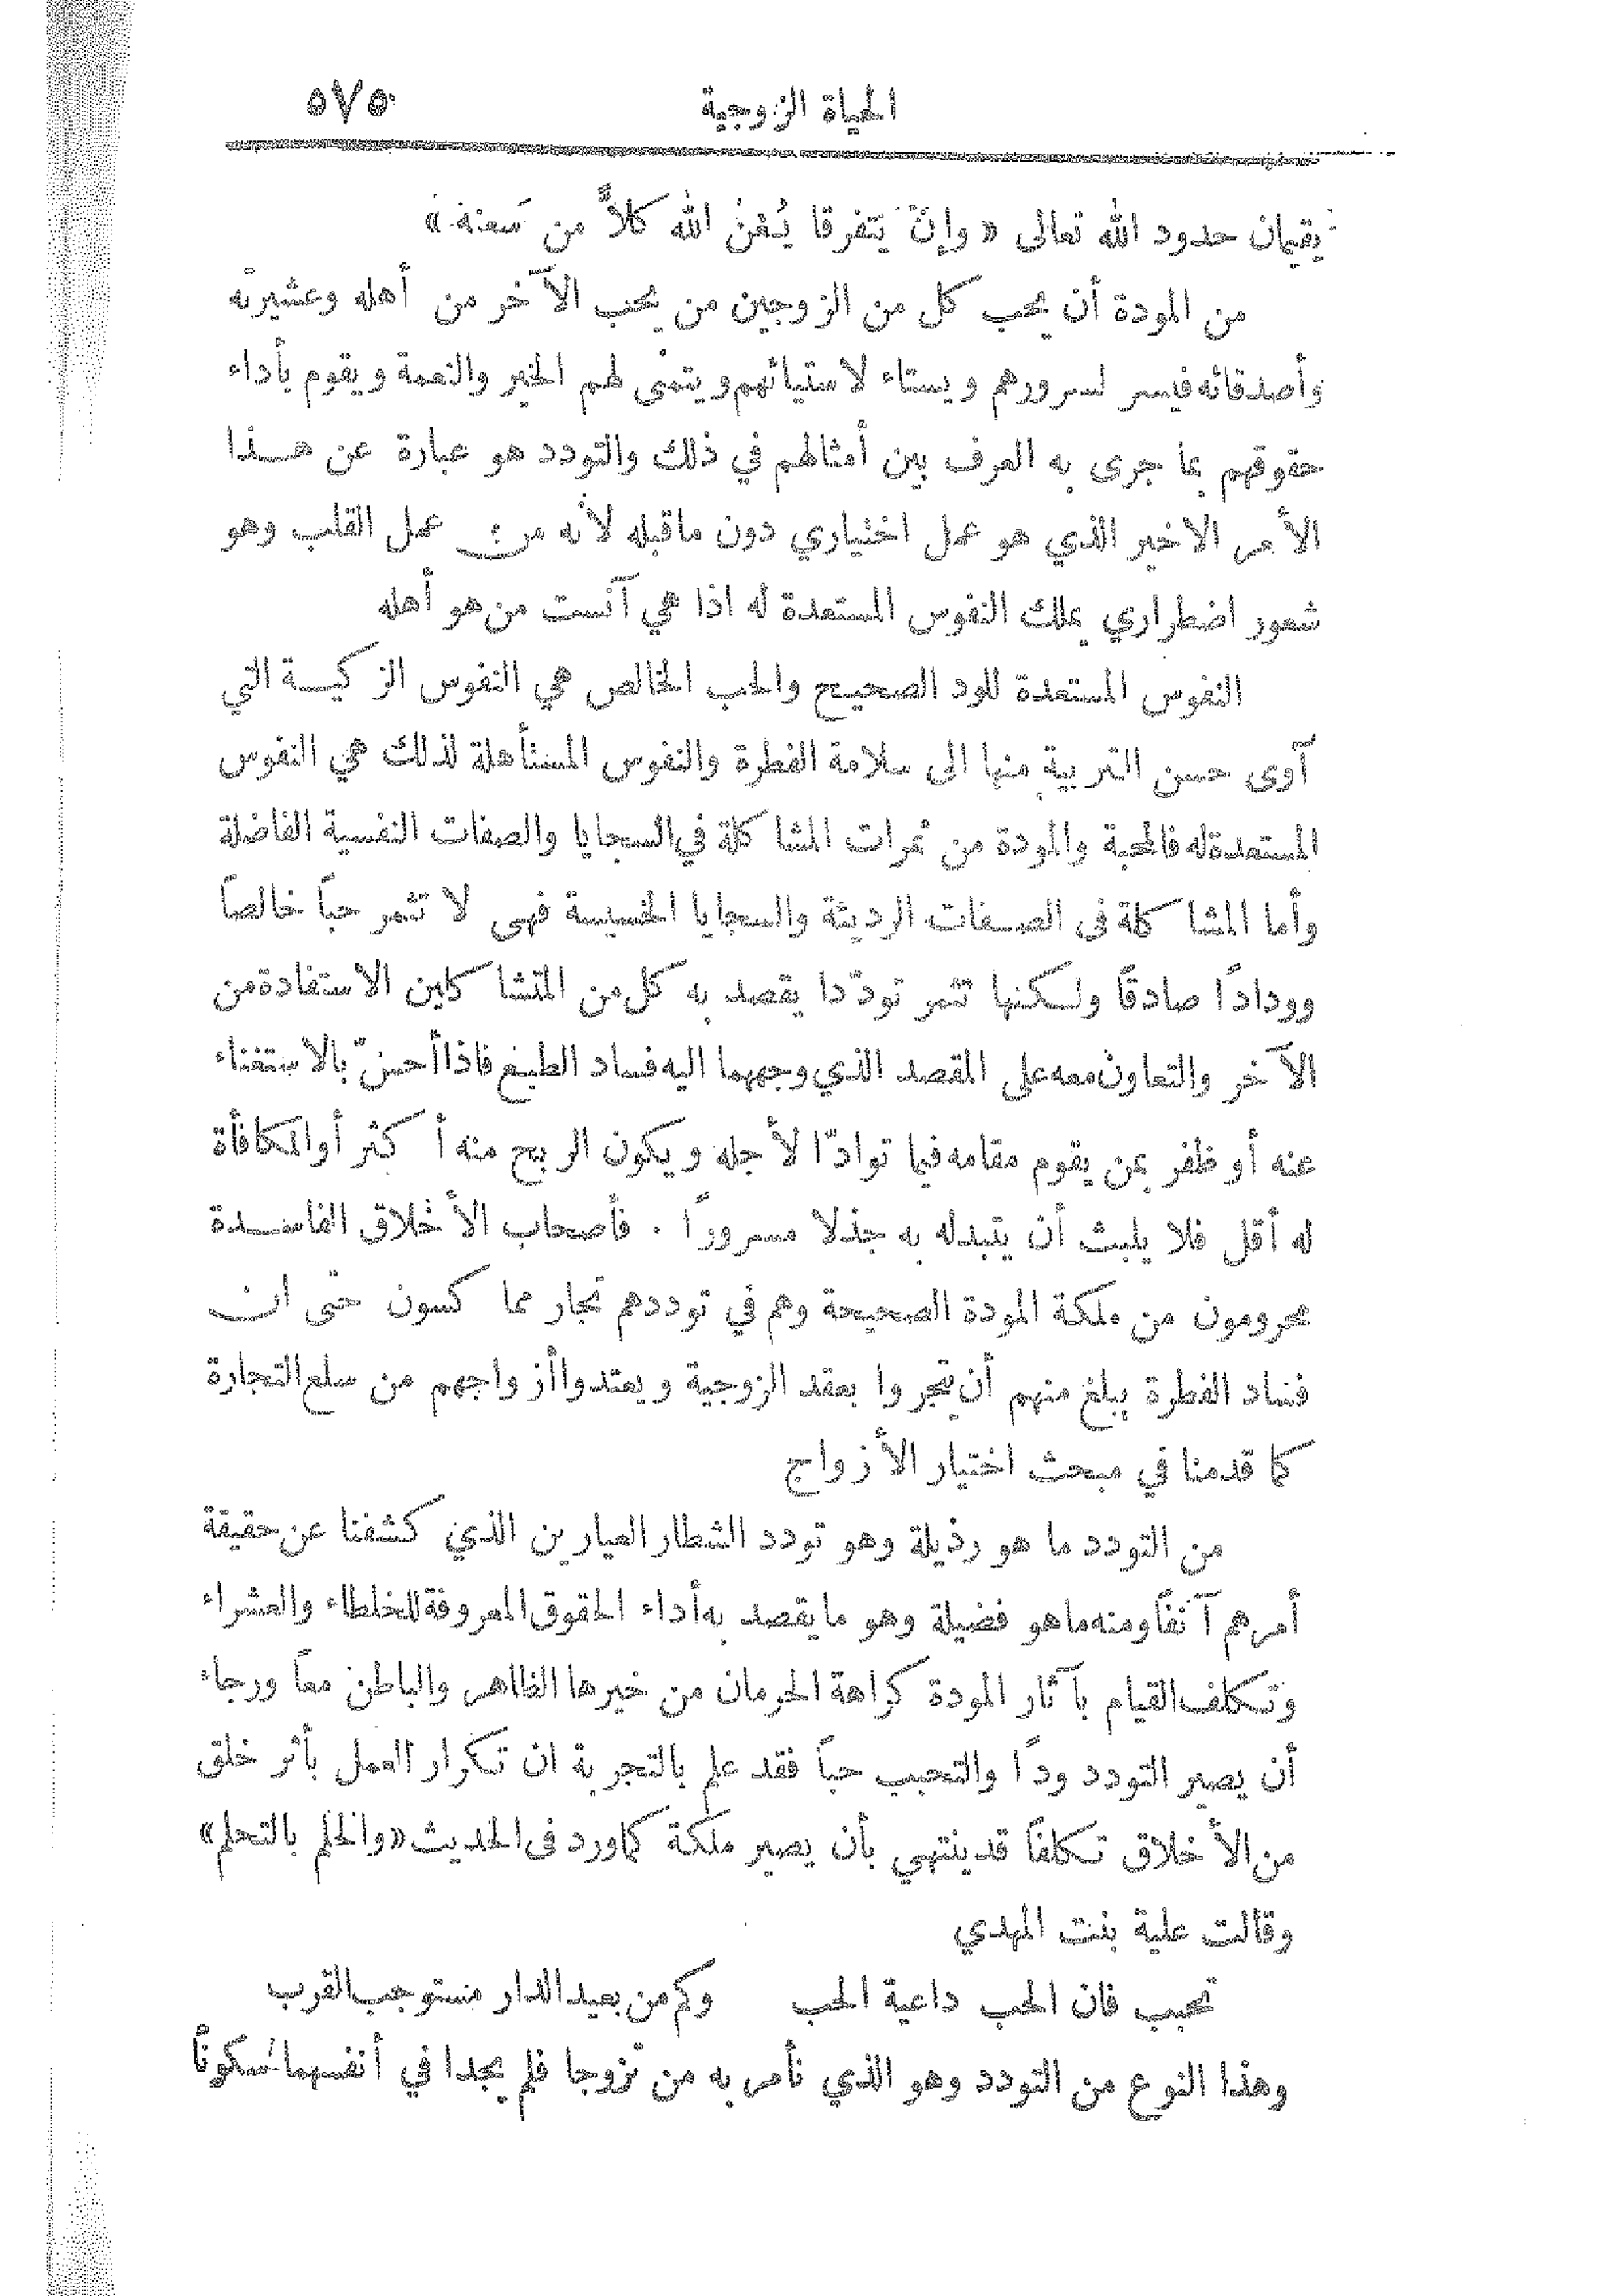 الحياة الزوجية ٥٧٥
يقيمان حدود الله تعالى « وإنْ يَتفرقا يُغْنِ الله كلاًّ من سَعته »
من المودة أن يحب كل من الزوجين من يحب الآخر من أهله وعشيرته
وأصدقائه فيسر لسرورهم ويستاء لاستيائهم ويتمنى لهم الخير والنعمة ويقوم بأداء
حقوقهم بما جرى به العرف بين أمثالهم في ذلك والتودد هو عبارة عن هذا
الأمر الاخير الذي هو عمل اختياري دون ما قبله لأنه من عمل القلب وهو
شعور اضطراري يملك النفوس المستعدة له اذا هي آنست من هو أهله
النفوس المستعدة للود الصحيح والحب الخالص هي النفوس الزكية التي
آوى حسن التربية منها الى سلامة الفطرة والنفوس المستأهلة لذلك هي النفوس
المستعدة له فالمحبة والمودة من ثمرات المشاكلة في السجايا والصفات النفسية الفاضلة
وأما المشاكلة فى الصفات الرديئة والسجايا الخسيسة فهى لا تثمر حباً خالصاً
وودادًا صادقًا ولكنها تثمر تودّدا يقصد به كل من المتشاكلين الاستفادة من
الآخر والتعاون معه على المقصد الذي وجههما اليه فساد الطبع فاذا أحسّ بالاستغناء
عنه أو ظفر بمن يقوم مقامه فيما توادّا لأجله ويكون الربح منه أكثر أو المكافأة
له أقل فلا يلبث أن يتبدله به جذلا مسرورًا . فأصحاب الأخلاق الفاسدة
محرومون من ملكة المودة الصحيحة وهم في توددهم تجار مماكسون حتى ان
فساد الفطرة يبلغ منهم أن يتجروا بعقد الزوجية ويعتدوا أزواجهم من سلع التجارة
كما قدمنا في مبحث اختيار الأزواج
من التودد ما هو رذيلة وهو تودد الشطار العيارين الذي كشفنا عن حقيقة
أمرهم آنفًا ومنه ما هو فضيلة وهو ما يقصد به أداء الحقوق المعروفة للخلطاء والعشراء
وتكلف القيام بآثار المودة كراهة الحرمان من خيرها الظاهر والباطن معاً ورجاء
أن يصير التودد ودًا والتحبب حباً فقد علم بالتجربة ان تكرار العمل بأثر خلق
من الأخلاق تكلفاً قد ينتهي بأن يصير ملكة كما ورد فى الحديث « والحلم بالتحلم »
وقالت علية بنت المهدي
تحبب فان الحب داعية الحب وكم من بعيد الدار مستوجب القرب
وهذا النوع من التودد وهو الذي نأمر به من تزوجا فلم يجدا في أنفسهما سكونًا